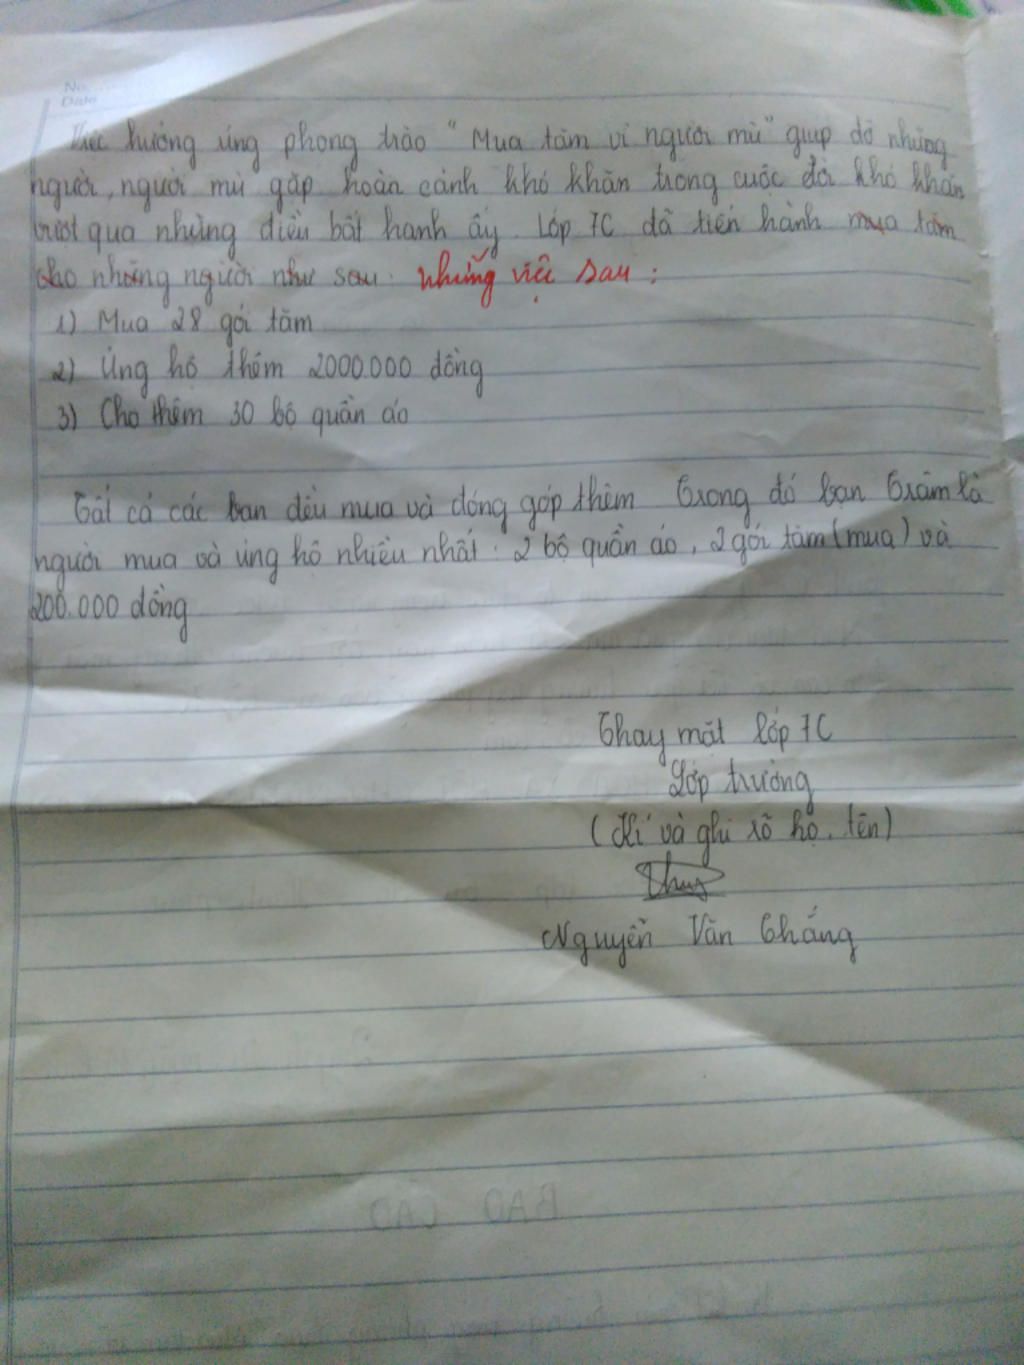 No.
Date
Việc hưởng ứng phong trào "Mua tăm vì người mù" giúp đỡ những
người, người mù gặp hoàn cảnh khó khăn trong cuộc đời khó khăn
vượt qua những điều bất hạnh ấy. Lớp 7C đã tiến hành mua tăm
cho những người như sau: những việc sau:
1) Mua 28 gói tăm
2) Ủng hộ thêm 2000.000 đồng
3) Cho thêm 30 bộ quần áo
Tất cả các bạn đều mua và đóng góp thêm Trong đó bạn Trâm là
người mua và ủng hộ nhiều nhất: 2 bộ quần áo, 2 gói tăm (mua) và
200.000 đồng
Thay mặt lớp 7C
Lớp trưởng
(Kí và ghi rõ họ, tên)
Nguyễn Văn Thắng
BÁO CÁO